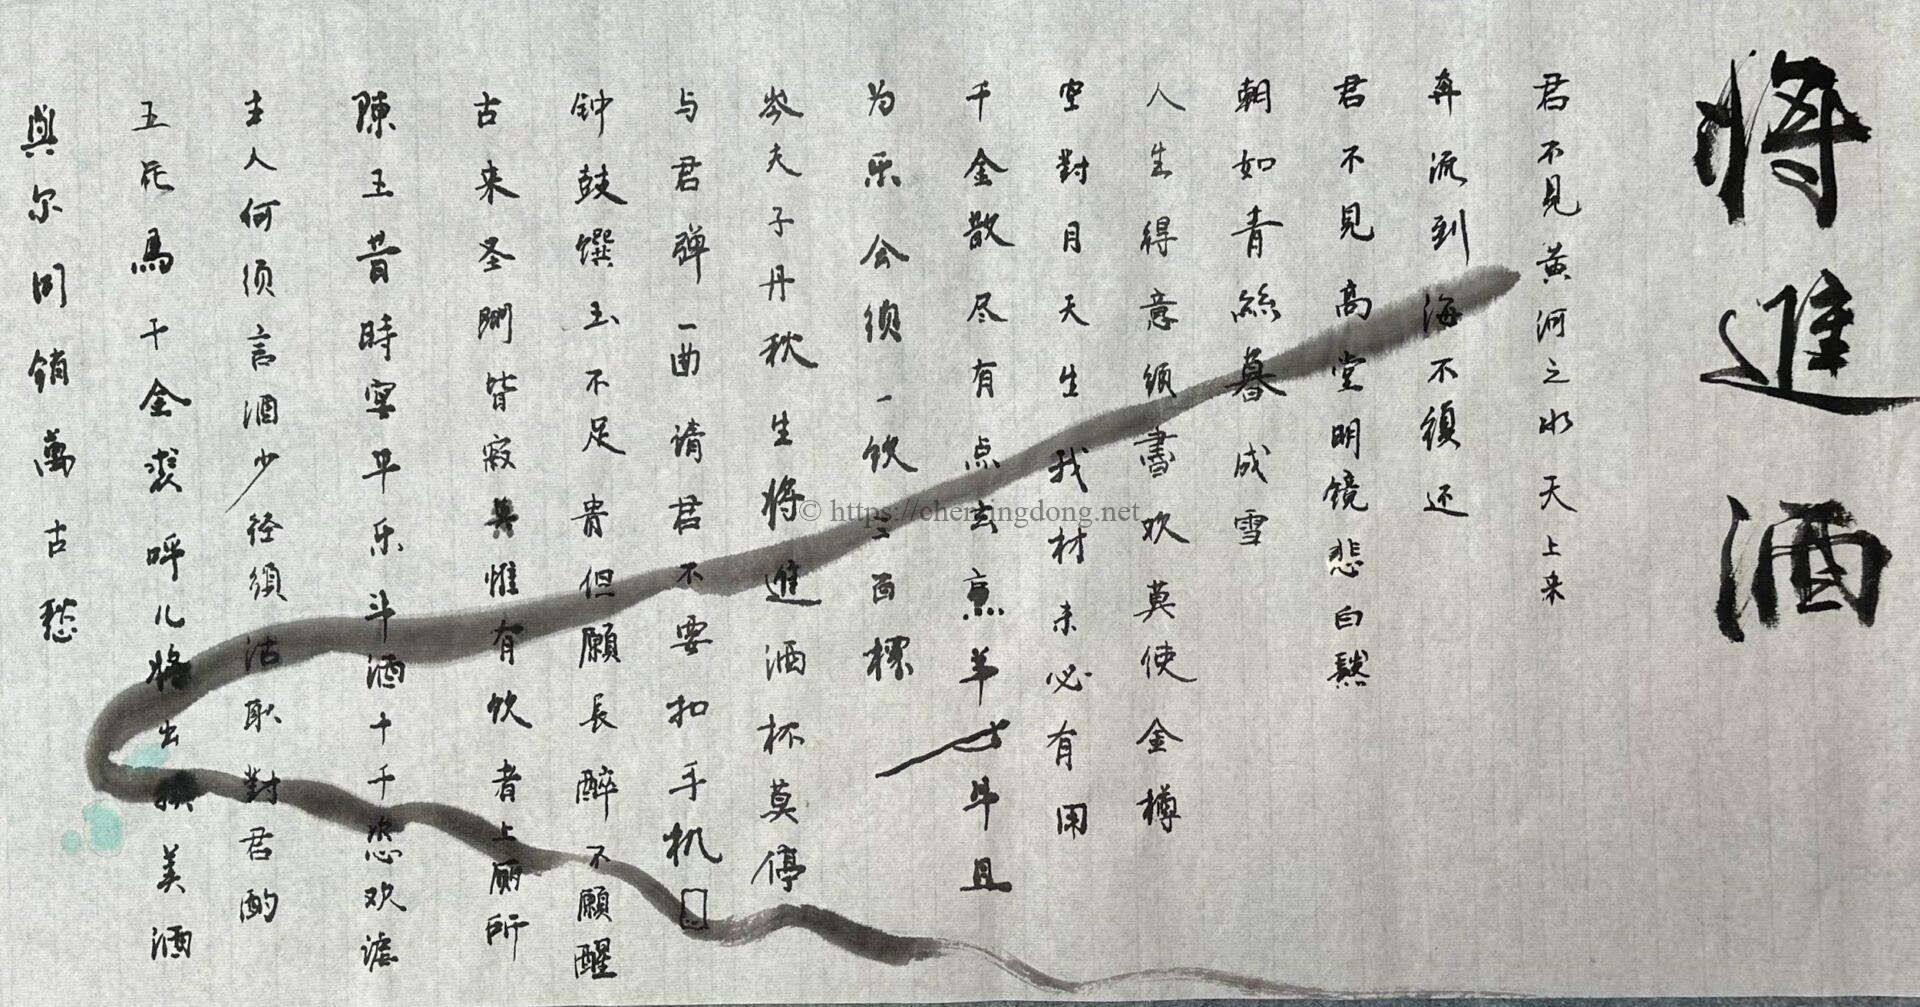 将進酒
君不見黄河之水天上来
奔流到海不須还
君不見高堂明镜悲白
朝如青絲暮成雪
人生得意須書欢莫使金樽
空對月天生我材未必有用
千金散尽有点玄烹羊牛且
为乐会须一饮三百
岑夫子丹秋生将進酒杯莫停
与君弹一曲请君不要扣手机
钟鼓馔玉不足贵但願長醉不願醒
古来圣皆寂惟有饮者上厕所
陳王昔時宴早乐斗酒十千恣欢谑
主人何须言酒少径須沽取對君酌
五花馬千金裘呼儿将出换美酒
與尔同销萬古愁